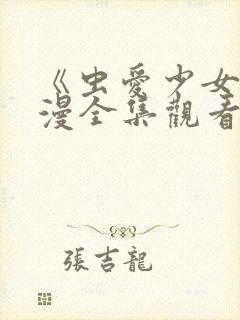 《虫愛少女
漫全集觀看
張吉龍